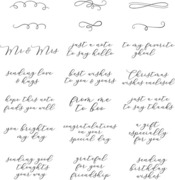 Mr & Mrs
just a note
to say hello
to my favorite
ghoul
sending love
& hugs
best wishes
to you & yours
Christmas
wishes enclosed
hope this note
finds you well
from me
to you
just a note
to say thanks
you brighten
my day
congratulations
on your
special day
a gift
especially
for you
sending good
thoughts
your way
grateful
for your
friendship
sending
birthday
wishes